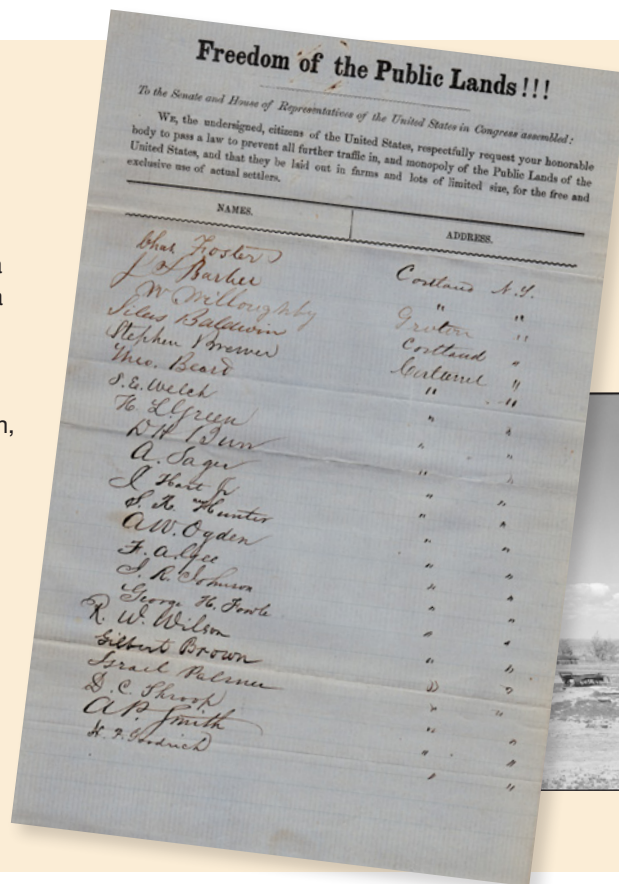 Freedom of the Public Lands!!!
To the Senate and House of Representatives of the United States in Congress assembled:
WE, the undersigned, citizens of the United States, respectfully request your honorable
body to pass a law to prevent all further traffic in, and monopoly of the Public Lands of the
United States, and that they be laid out in farms and lots of limited size, for the free and
exclusive use of actual settlers.
NAMES. ADDRESS.
Chas Foster Cortland N.Y.
J Barber " "
W Willoughby Groton "
Silas Baldwin Cortland "
Stephen Brewer Cortland "
Theo. Beard " "
S. E. Welch " "
H. L. Green " "
D. H. " "
A. Sager " "
J Hart Jr " "
S. R. Hunter " "
A. W. Ogden " "
F. A. " "
J. R. Johnson " "
George H. Fowle " "
R. W. Wilson " "
Gilbert Brown " "
Israel Palmer " "
D. C. " "
A. P. Smith " "
H. F. Goodrich " "